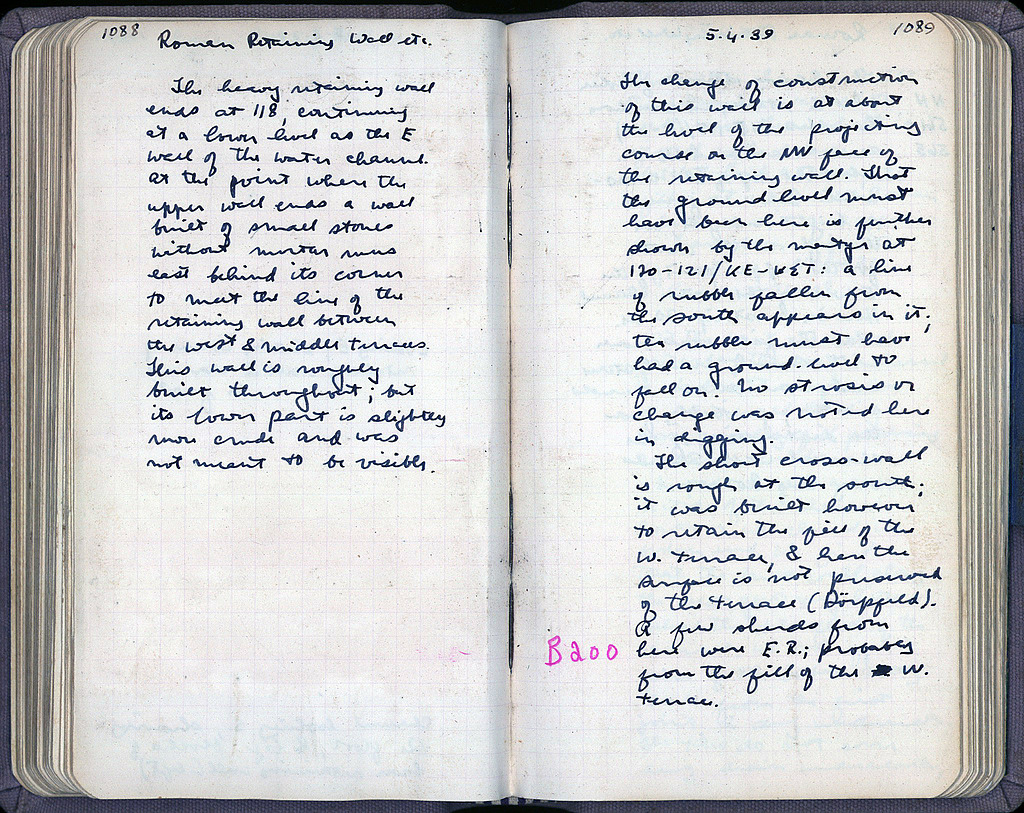 1088
Roman Retaining Wall etc.
The heavy retaining wall
ends at 118, continuing
at a lower level as the E
wall of the water channel.
At the point where the
upper wall ends a wall
built of small stones
without mortar runs
east behind its corner
to meet the line of the
retaining wall between
the west & middle terraces.
This wall is roughly
built throughout; but
its lower part is slightly
more crude and was
not meant to be visible.
5.4.39
1089
The change of construction
of this wall is at about
the level of the projecting
course on the NW face of
the retaining wall. That
the ground level must
have been here is further
shown by the martyr at
120-121/ΚΕ-ΚΣΤ: a line
of rubble fallen from
the south appears in it;
the rubble must have
had a ground-level to
fall on. No strosis or
change was noted here
in digging.
The short cross-wall
is rough at the south;
it was built however
to retain the fill of the
W. terrace, & here the
surface is not preserved
of the terrace (Dörpfeld).
A few sherds from
here were E.R.; probably
from the fill of the W.
terrace.
B200